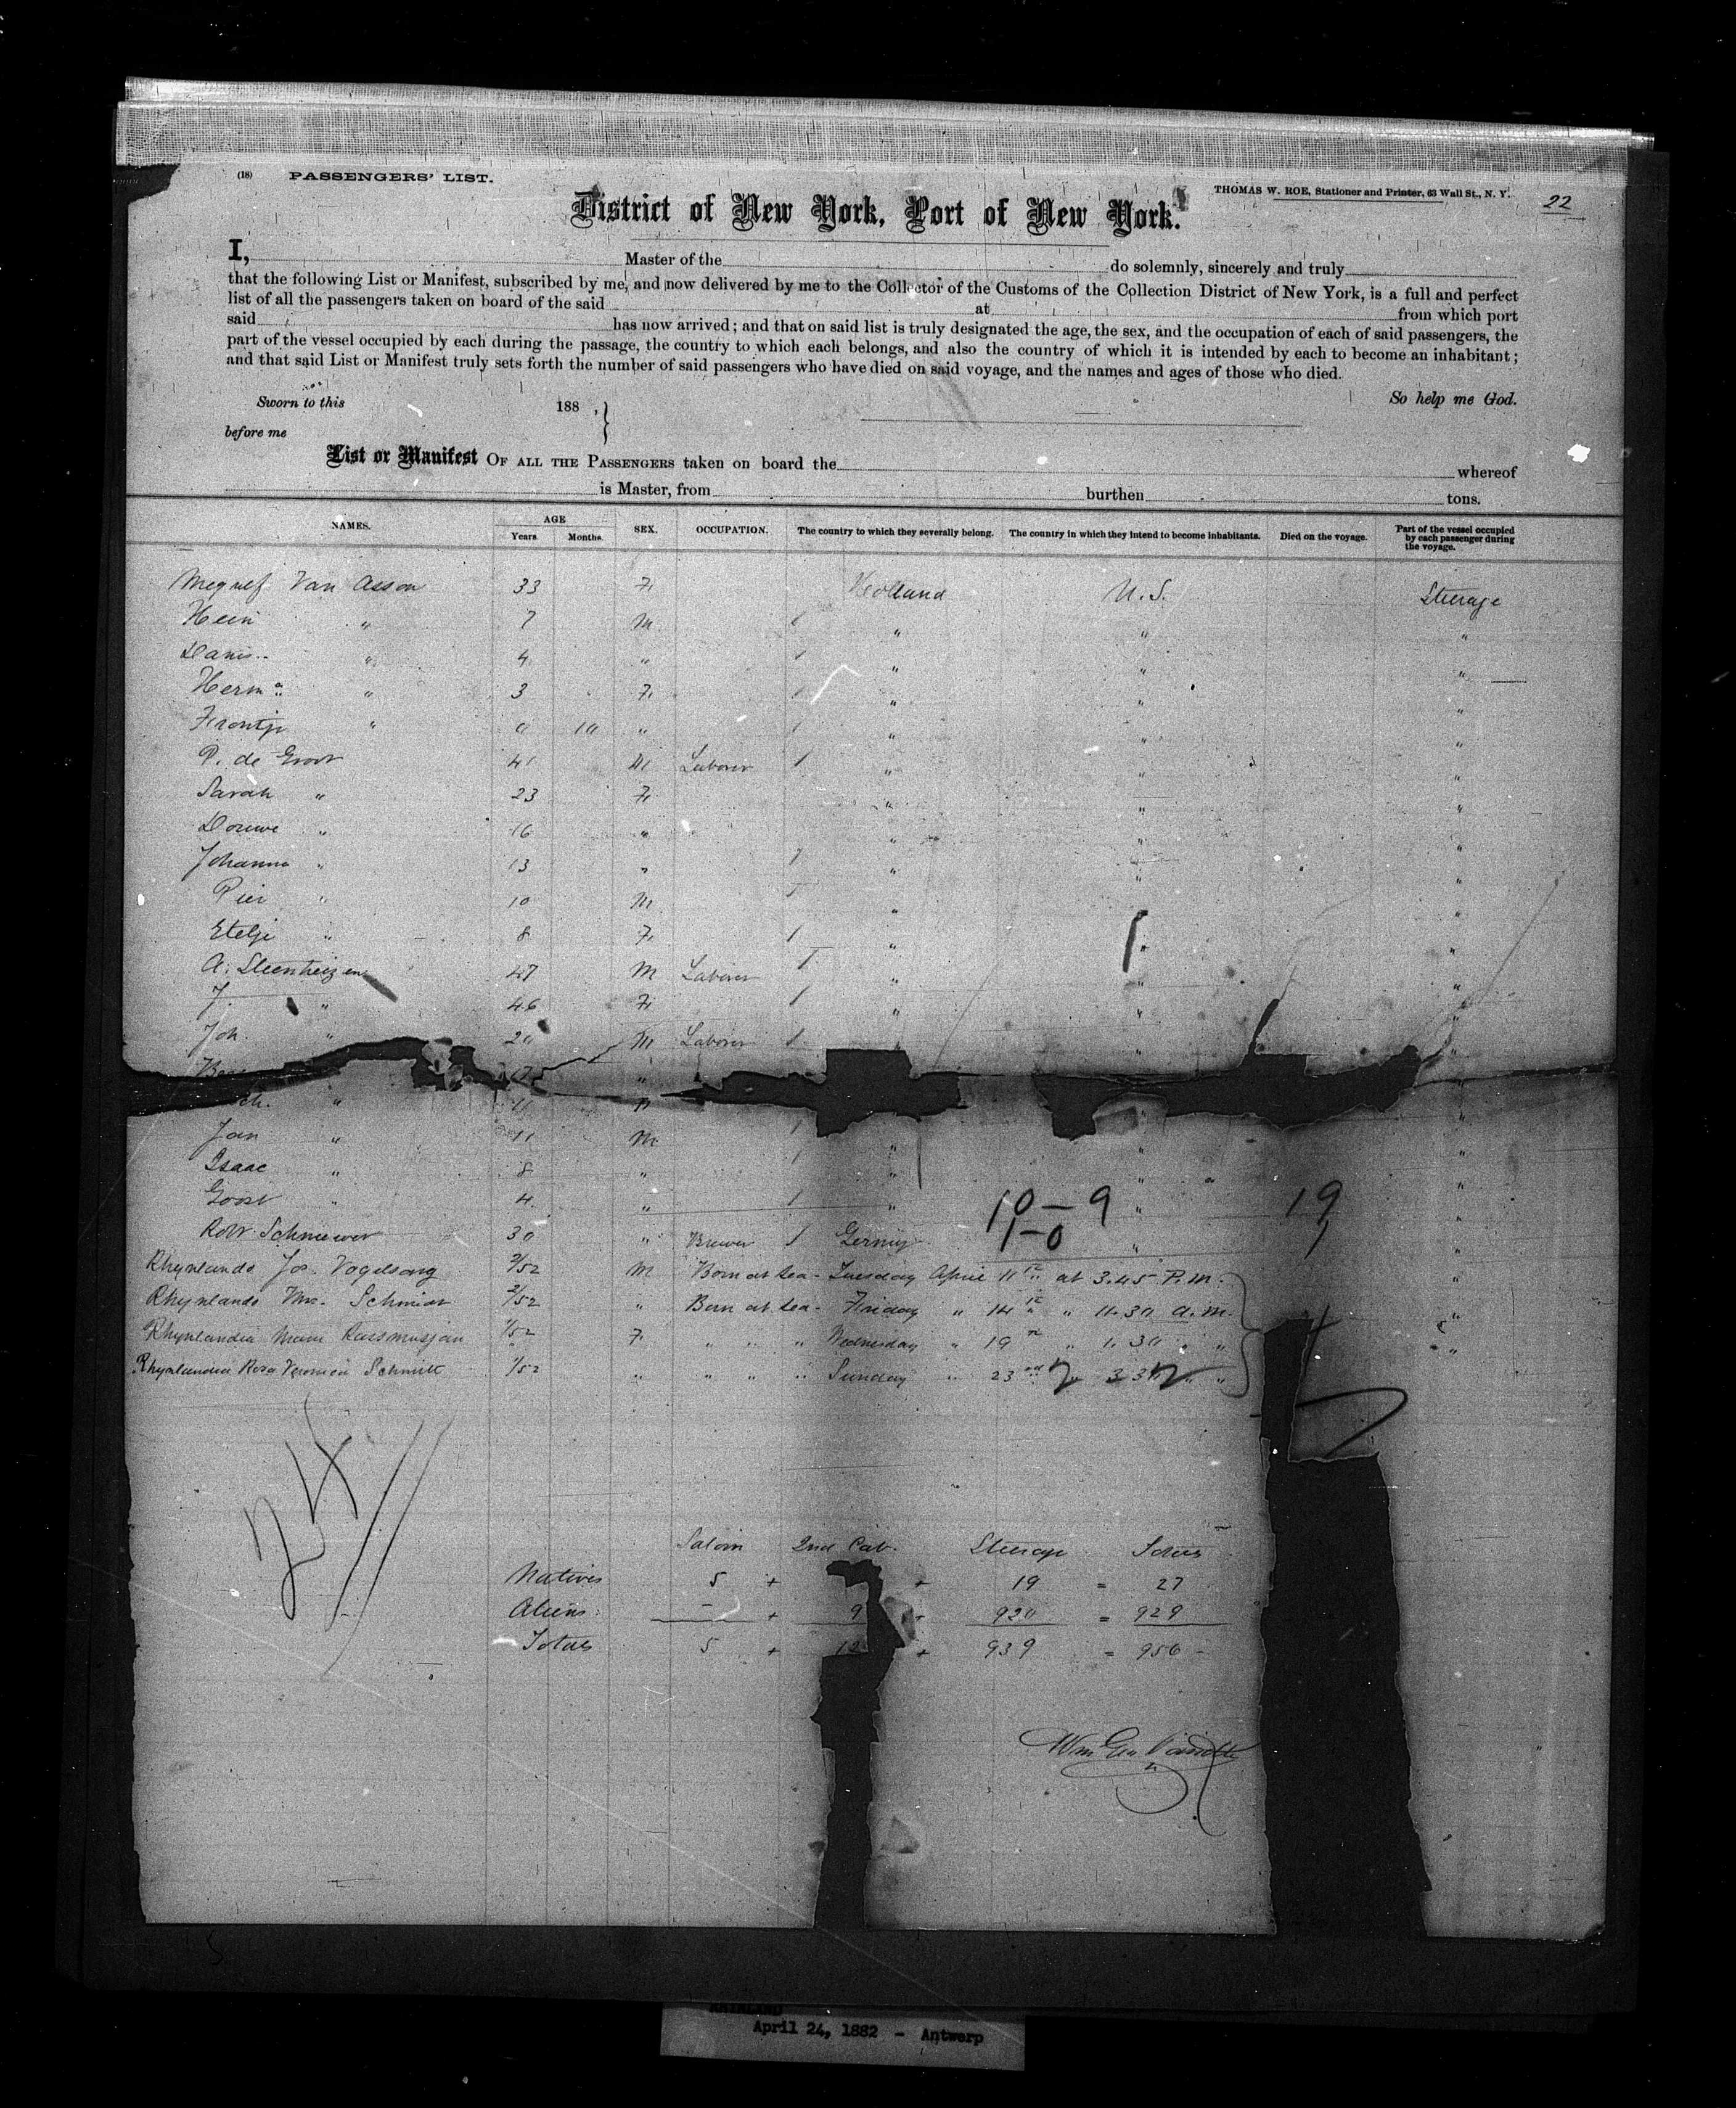 (18) PASSENGERS' LIST.
THOMAS W. ROE, Stationer and Printer, 63 Wall St., N. Y.
22
District of New York, Port of New York.
I, Master of the do solemnly, sincerely and truly
that the following List or Manifest, subscribed by me, and now delivered by me to the Collector of the Customs of the Collection District of New York, is a full and perfect
list of all the passengers taken on board of the said at from which port
said has now arrived; and that on said list is truly designated the age, the sex, and the occupation of each of said passengers, the
part of the vessel occupied by each during the passage, the country to which each belongs, and also the country of which it is intended by each to become an inhabitant;
and that said List or Manifest truly sets forth the number of said passengers who have died on said voyage, and the names and ages of those who died.
Sworn to this 188 , So help me God.
before me
List or Manifest OF ALL THE PASSENGERS taken on board the whereof
is Master, from burthen tons.
NAMES. AGE Years. Months. SEX. OCCUPATION. The country to which they severally belong. The country in which they intend to become inhabitants. Died on the voyage. Part of the vessel occupied by each passenger during the voyage.
Van Assen 33 F Holland U.S. Steerage
Hein " 7 M " " "
" 4 " " " "
Herma " 3 F " " "
" 0 10 " " " "
P. de Groot 41 M Laborer 1 " " "
Sarah " 23 F " " "
Douwe " 16 " " " "
Johanna " 13 " 1 " " "
Pier " 10 M " " "
" 8 F 1 " " "
A. 47 M Laborer 1 " " "
J. " 46 F 1 " " "
Joh. " 20 M Laborer 1 " " "
"
" 11 " "
Jan " 11 M 1 " " "
Isaac " 8 " " " "
Goost " 4 " 1 " " "
10 - 9 19
Robt 30 " Brewer 1 Germy " "
1 - 0 1
Rhynlando Jos. Vogelsang 2/52 M Born at Sea - Tuesday April 11th at 3.45 P.M.
Rhynlando Schmidt 2/52 " Born at Sea - Friday " 14th " 11.30 A.M. "
Rhynlandia Marie Rassmusjan 1/52 F " " " Wednesday " 19th " 1.30 " " "
Rhynlandia Rosa Veronica Schmitt 1/52 " " " " Sunday " 23rd " " "
Saloon 2nd Cab. Steerage Totals
Natives 5 + + 19 = 27
Aliens - + 9 + 920 = 929
Totals 5 + 12 + 939 = 956
RHINELAND
April 24, 1882 - Antwerp